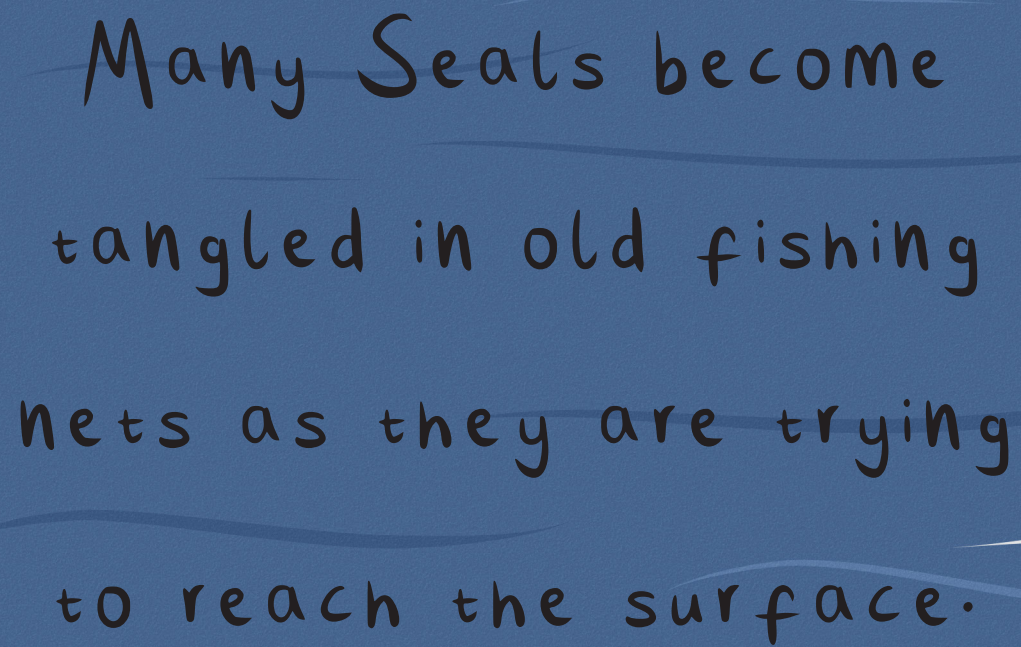 Many Seals become
tangled in old fishing
nets as they are trying
to reach the surface.